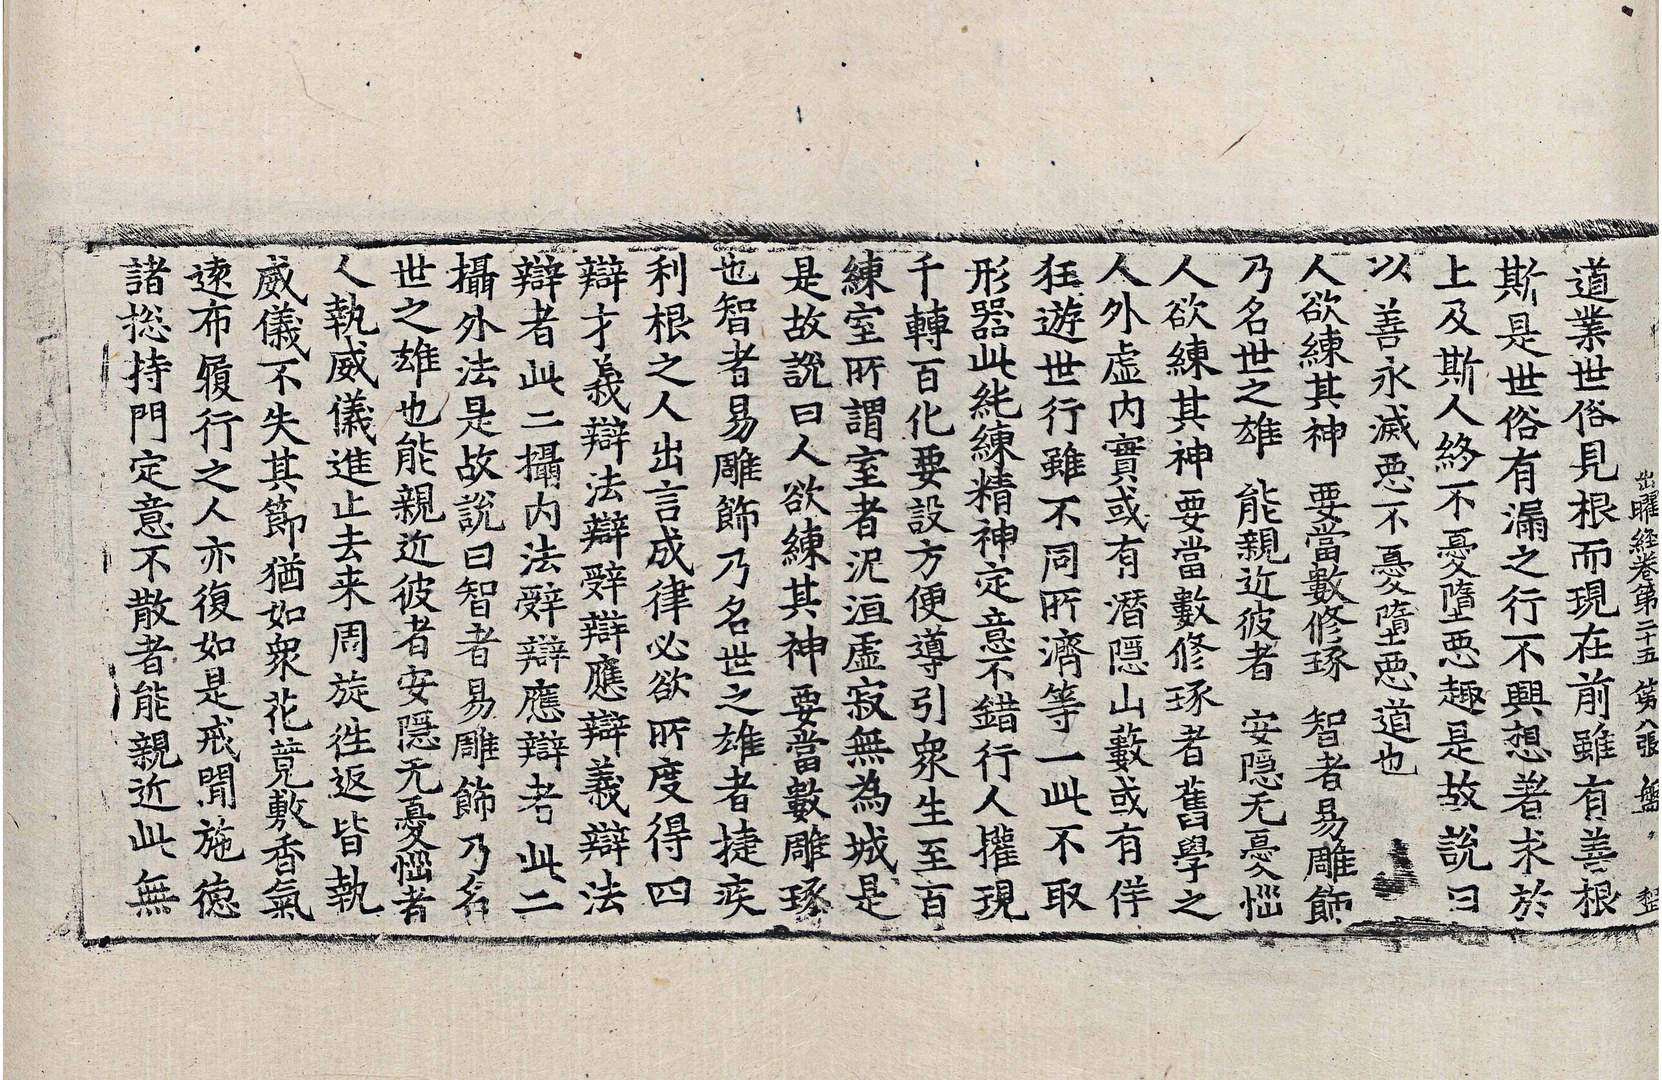 出曜経巻第二十五 第八張 盤
道業世俗見根而現在前雖有善根
斯是世俗有漏之行不興想著求於
上及斯人終不憂墮惡趣是故說曰
以善永滅惡不憂墮惡道也
人欲練其神 要當數修琢 智者易雕飾
乃名世之雄 能親近彼者 安隱无憂惱
人欲練其神要當數修琢者舊學之
人外虛内實或有潛隱山藪或有佯
狂遊世行雖不同所濟等一此不取
形器此純練精神定意不錯行人擢現
千轉百化要設方便導引衆生至百
練室所謂室者泥洹虛寂無為城是
是故說曰人欲練其神要當數雕琢
也智者易雕飾乃名世之雄者捷疾
利根之人出言成律必欲所度得四
辯才義辯法辯辭辯應辯義辯法
辯者此二攝内法辭辯應辯者此二
攝外法是故說曰智者易雕飾乃名
世之雄也能親近彼者安隱无憂惱者
人執威儀進止去来周旋往返皆執
威儀不失其節猶如衆花芘敷香氣
遠布履行之人亦復如是戒聞施德
諸捴持門定意不散者能親近此無